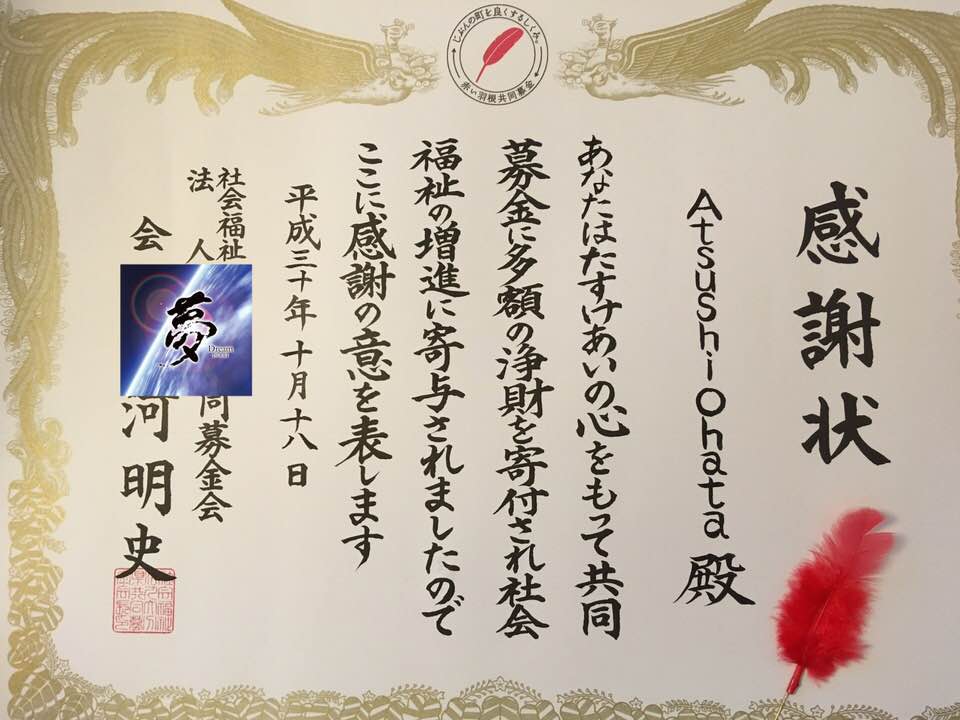 じぶんの町を良くするしくみ。
赤い羽根共同募金
感謝状
Atsushi Ohata 殿
あなたはたすけあいの心をもって共同
募金に多額の浄財を寄付され社会
福祉の増進に寄与されましたので
ここに感謝の意を表します
平成三十年十月十八日
社会福祉
法人
同募金会
会
河明史
夢
Dream